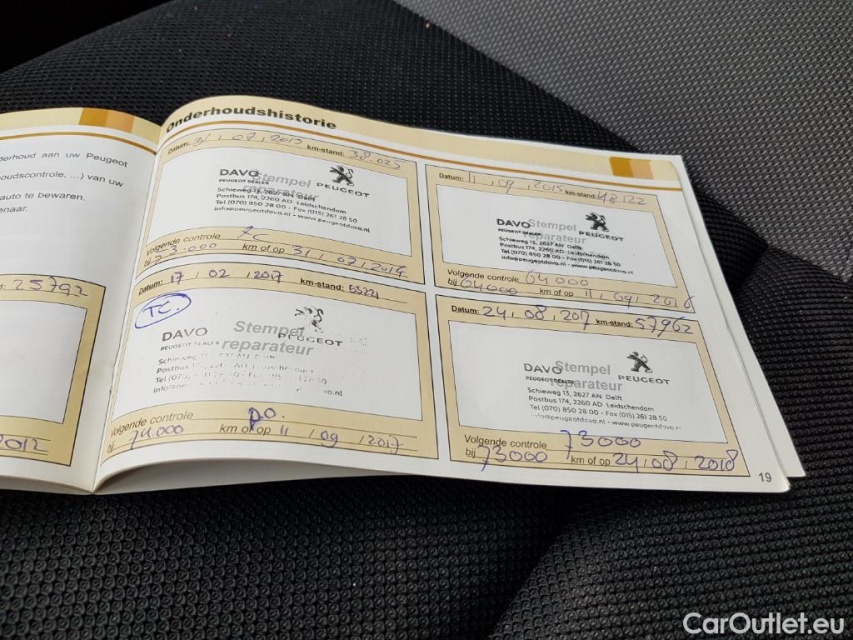 derhoud aan uw Peugeot
oudscontrole, ...) van uw
auto te bewaren,
enaar.
25792
2012
Onderhoudshistorie
Datum: 31, 07, 2013 km-stand: 38.025
DAVO Stempel
PEUGEOT DEALER reparateur PEUGEOT
Schieweg 13, 2627 AN Delft
Postbus 174, 2260 AD Leidschendam
Tel (070) 850 28 00 - Fax (015) 261 28 50
info@peugeotdavo.nl - www.peugeotdavo.nl
Volgende controle
km of op 31, 07, 2014
Datum: 11, 09, 2015 km-stand: 48122
DAVO Stempel
PEUGEOT DEALER reparateur PEUGEOT
Schieweg 13, 2627 AN Delft
Postbus 174, 2260 AD Leidschendam
Tel (070) 850 28 00 - Fax (015) 261 28 50
info@peugeotdavo.nl - www.peugeotdavo.nl
Volgende controle 64000
bij 64000 km of op 11, 09, 2016
Datum: 17, 02, 2017 km-stand:
T.C.
DAVO Stempel
PEUGEOT DEALER reparateur PEUGEOT
Volgende controle p.o.
bij 74.000 km of op 11, 09, 2017
Datum: 24, 08, 2017 km-stand: 57962
DAVO Stempel
PEUGEOT DEALER reparateur PEUGEOT
Schieweg 13, 2627 AN Delft
Postbus 174, 2260 AD Leidschendam
Tel (070) 850 28 00 - Fax (015) 261 28 50
info@peugeotdavo.nl - www.peugeotdavo.nl
Volgende controle 73000
bij 73000 km of op 24, 08, 2018
19
CarOutlet.eu